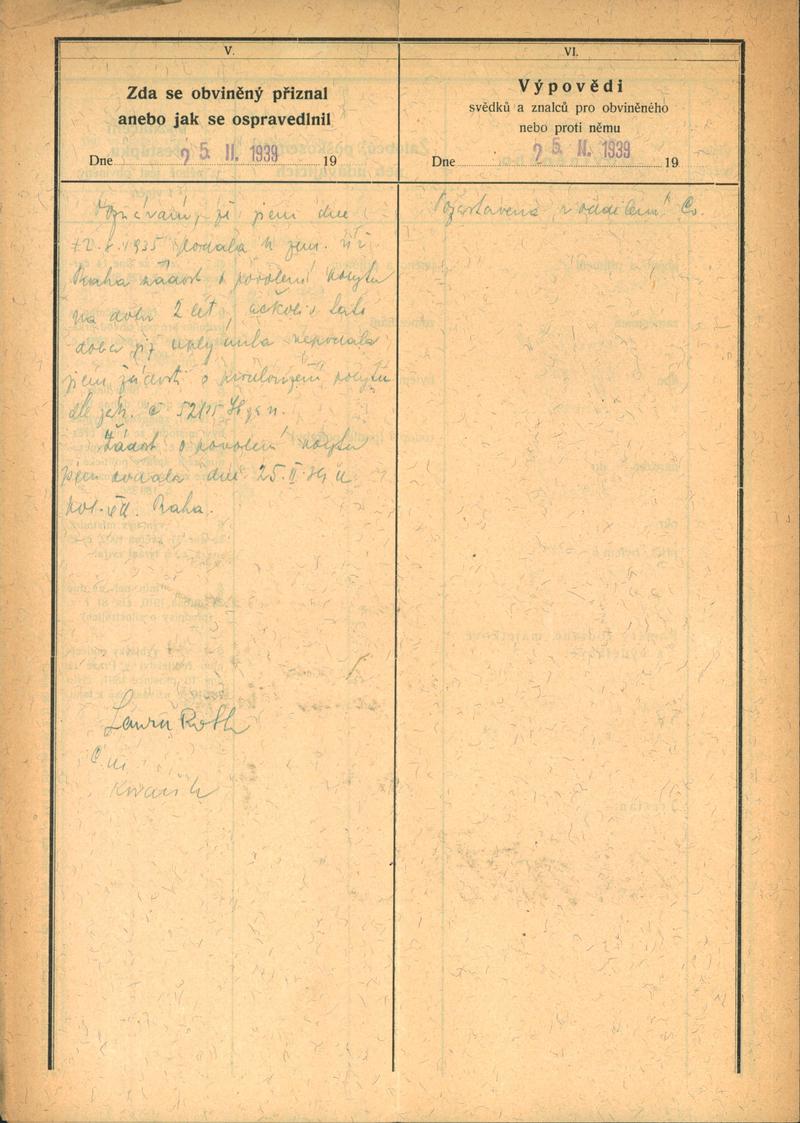 V.
Zda se obviněný přiznal
anebo jak se ospravedlnil
Dne 25. II. 1939 19
Doznávám, že jsem dne
1935 podala k zem. úř.
Praha žádost o povolení pobytu
na dobu 2 let, ačkoliv tato
doba již uplynula nepodala
jsem žádosti o prodloužení pobytu
dle zák. č 52/35 Sb z a n.
Žádost o povolení pobytu
jsem podala dne 25. II. 39 u
kom. VII. Praha.
Laura Roth
VI.
Výpovědi
svědků a znalců pro obviněného
nebo proti němu
Dne 25. II. 1939 19
v oddělení